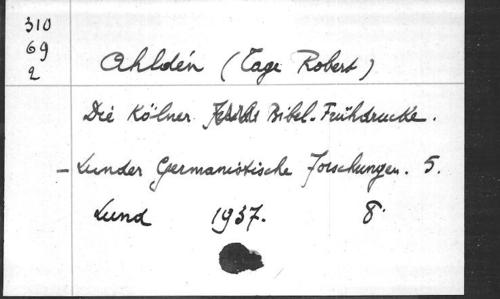 310
69
2
Ahldén (Tage Robert)
Die Kölner Bibel-Frühdrucke.
- Lunder Germanistische Forschungen. 5.
Lund 1937. 8°